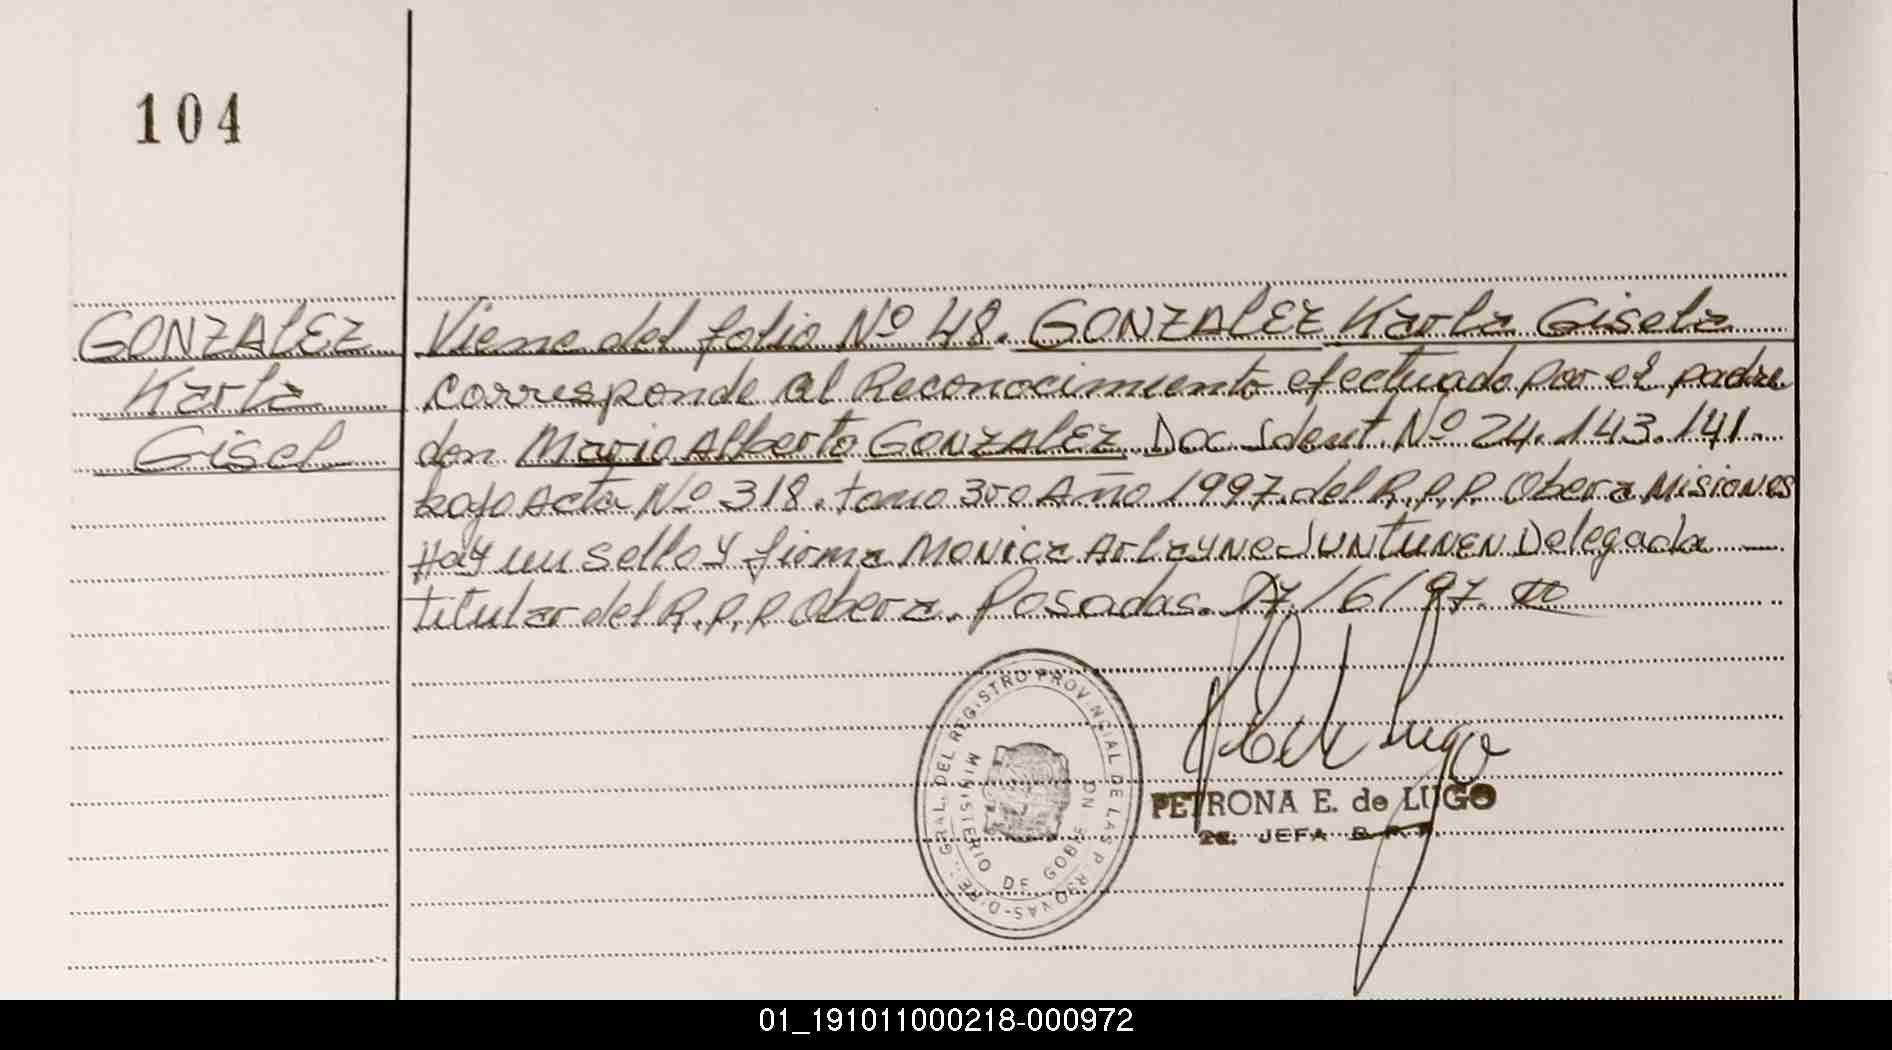 104
GONZALEZ
Karla
Gisel
Viene del folio Nº 48. GONZALEZ Karla Gisela
corresponde al Reconocimiento efectuado por el padre
don Mario Alberto GONZALEZ Doc Ident. Nº 24.143.141.
bajo Acta Nº 318. tomo 3ro Año 1997. del R.P.P. Obera Misiones
Hay un sello y firma Monica Arlayne JUNTUNEN Delegada
titular del R.P.P. Obera. Posadas. /6/97.
GRAL. DEL REGISTRO PROVINCIAL DE LAS P
MINISTERIO DE GOBE
PETRONA E. de LUGO
JEFA
01_191011000218-000972